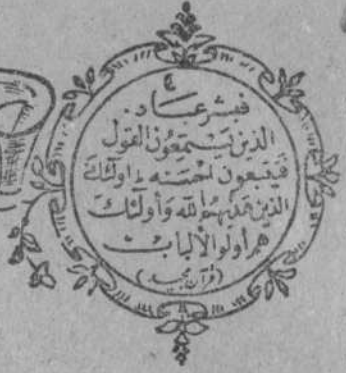 ٤
فبشر عبـــاد .
الذين يستمعون القول
فيتبعون احسنه ، اولئك
الذين هديهم الله وأولئك
هم أولو الألباب
(قرآن مجيد)